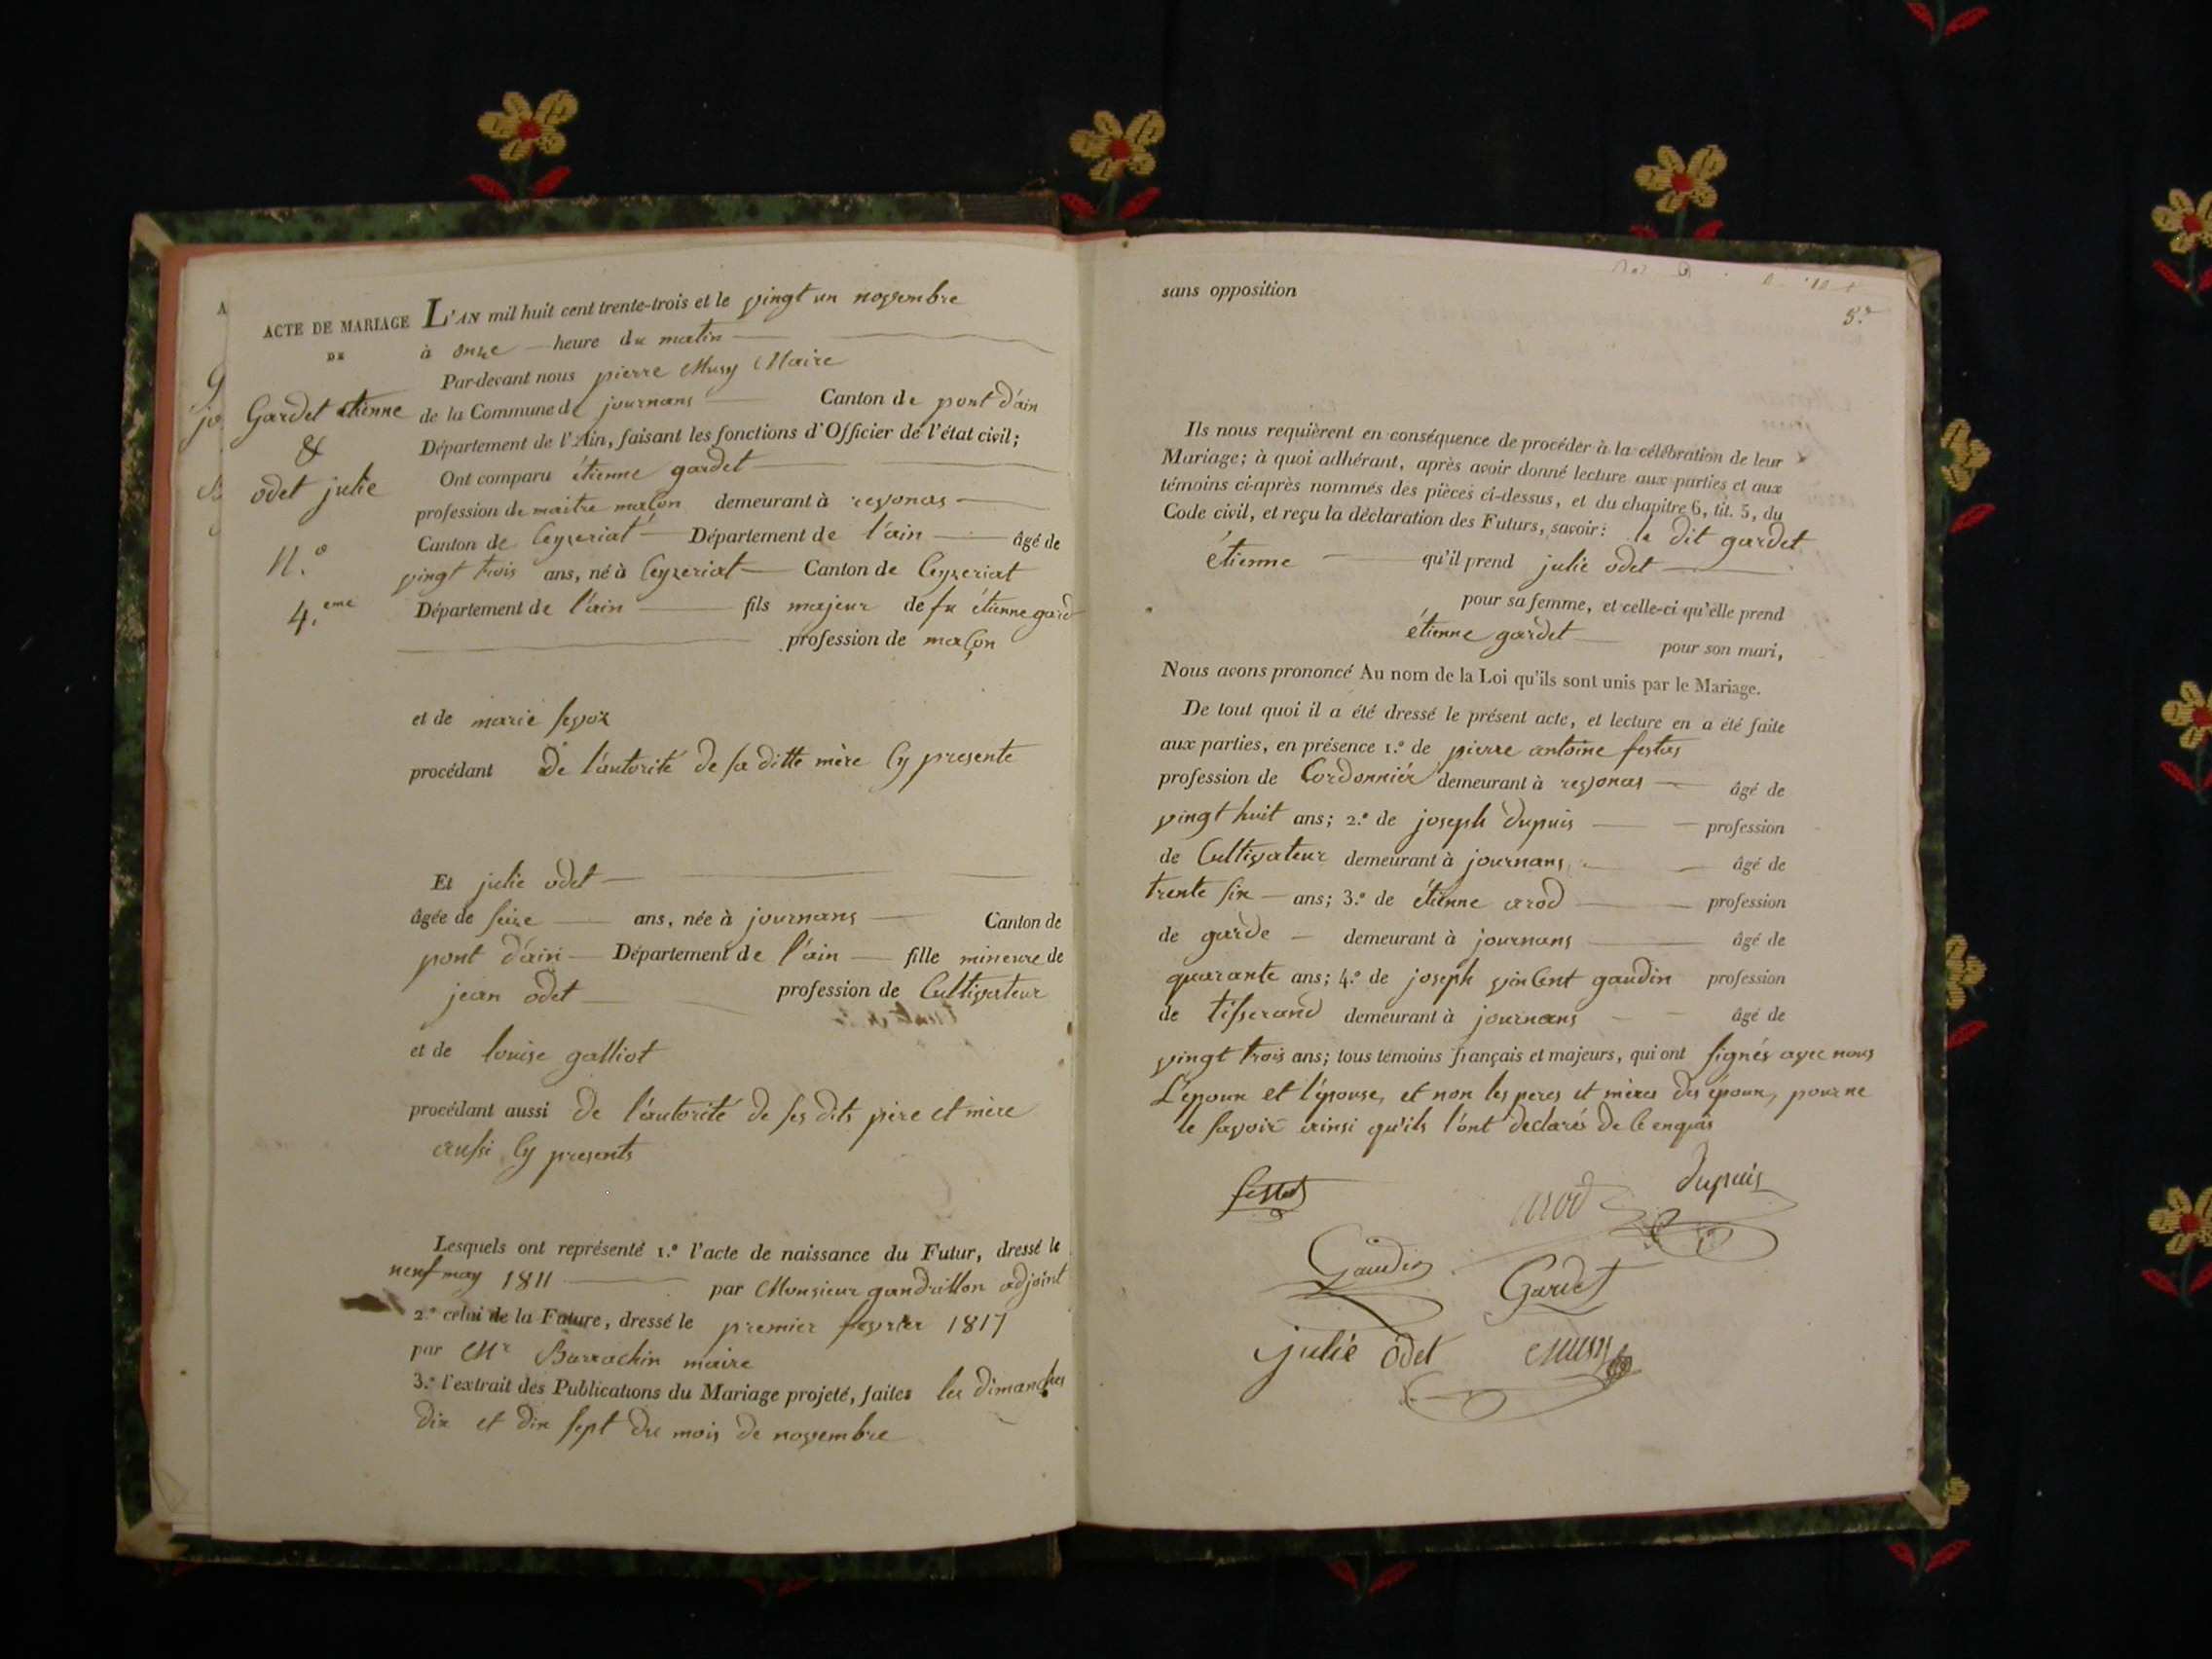 ACTE DE MARIAGE
DE
Gardet étienne
&
odet julie
N.o
4.eme
L'AN mil huit cent trente-trois et le vingt un novembre
à onze heure du matin
Par-devant nous pierre Musy Maire
de la Commune de journans Canton de pont d'ain
Département de l'Ain, faisant les fonctions d'Officier de l'état civil;
Ont comparu étienne gardet
profession de maitre maçon demeurant à revonas
Canton de Ceyzeriat Département de l'ain âgé de
vingt trois ans, né à Ceyzeriat Canton de Ceyzeriat
Département de l'ain fils majeur de fu étienne gard
profession de maçon
et de marie
procédant de l'autorité de sa ditte mère Cy presente
Et julie odet
âgée de seize ans, née à journans Canton de
pont d'ain Département de l'ain fille mineure de
jean odet profession de Cultivateur
et de louise galliot
procédant aussi de l'autorité de ses dits père et mère
aussi Cy presents
Lesquels ont représenté 1.o l'acte de naissance du Futur, dressé le
neuf may 1811 par Monsieur gandrillon adjoint
2.o celui de la Future, dressé le premier fevrier 1817
par Mr Barrachin maire
3.o l'extrait des Publications du Mariage projeté, faites les dimanches
dix et dix sept du mois de novembre
sans opposition
5.e
Ils nous requièrent en conséquence de procéder à la célébration de leur
Mariage; à quoi adhérant, après avoir donné lecture aux parties et aux
témoins ci-après nommés des pièces ci-dessus, et du chapitre 6, tit. 5, du
Code civil, et reçu la déclaration des Futurs, savoir: le dit gardet
étienne qu'il prend julie odet
pour sa femme, et celle-ci qu'elle prend
étienne gardet pour son mari,
Nous avons prononcé Au nom de la Loi qu'ils sont unis par le Mariage.
De tout quoi il a été dressé le présent acte, et lecture en a été faite
aux parties, en présence 1.o de pierre antoine festas
profession de Cordonniér demeurant à revonas âgé de
vingt huit ans; 2.o de joseph dupuis profession
de Cultivateur demeurant à journans âgé de
trente six ans; 3.o de étienne arod profession
de garde demeurant à journans âgé de
quarante ans; 4.o de joseph vinCent gaudin profession
de tisserand demeurant à journans âgé de
vingt trois ans; tous témoins français et majeurs, qui ont signés avec nous
L'époux et l'épouse, et non les peres et mères des époux, pour ne
le savoir ainsi qu'ils l'ont declarés de Ce enquis
arod dupuis
Gaudin Gardet
julie odet Musy